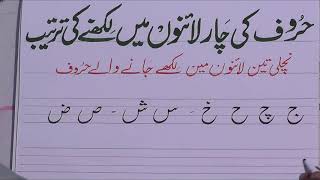 حروف کی چار لائنوں میں لکھنے کی ترتیب
نچلی تین لائنوں میں لکھے جانے والے حروف
ج چ ح خ ۔ س ش ۔ ص ض